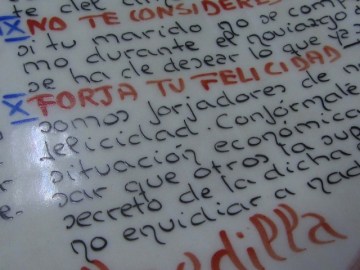 te del
IX NO TE CONSIDERES
si tu marido no se comp
mo durante el noviazgo
se ha de desear lo que ya
XI FORJA TU FELICIDAD
somos forjadores de n
felicidad. Confórmate
situación económica
sar que otros la sup
secreto de la dicha
no envidiar a nad